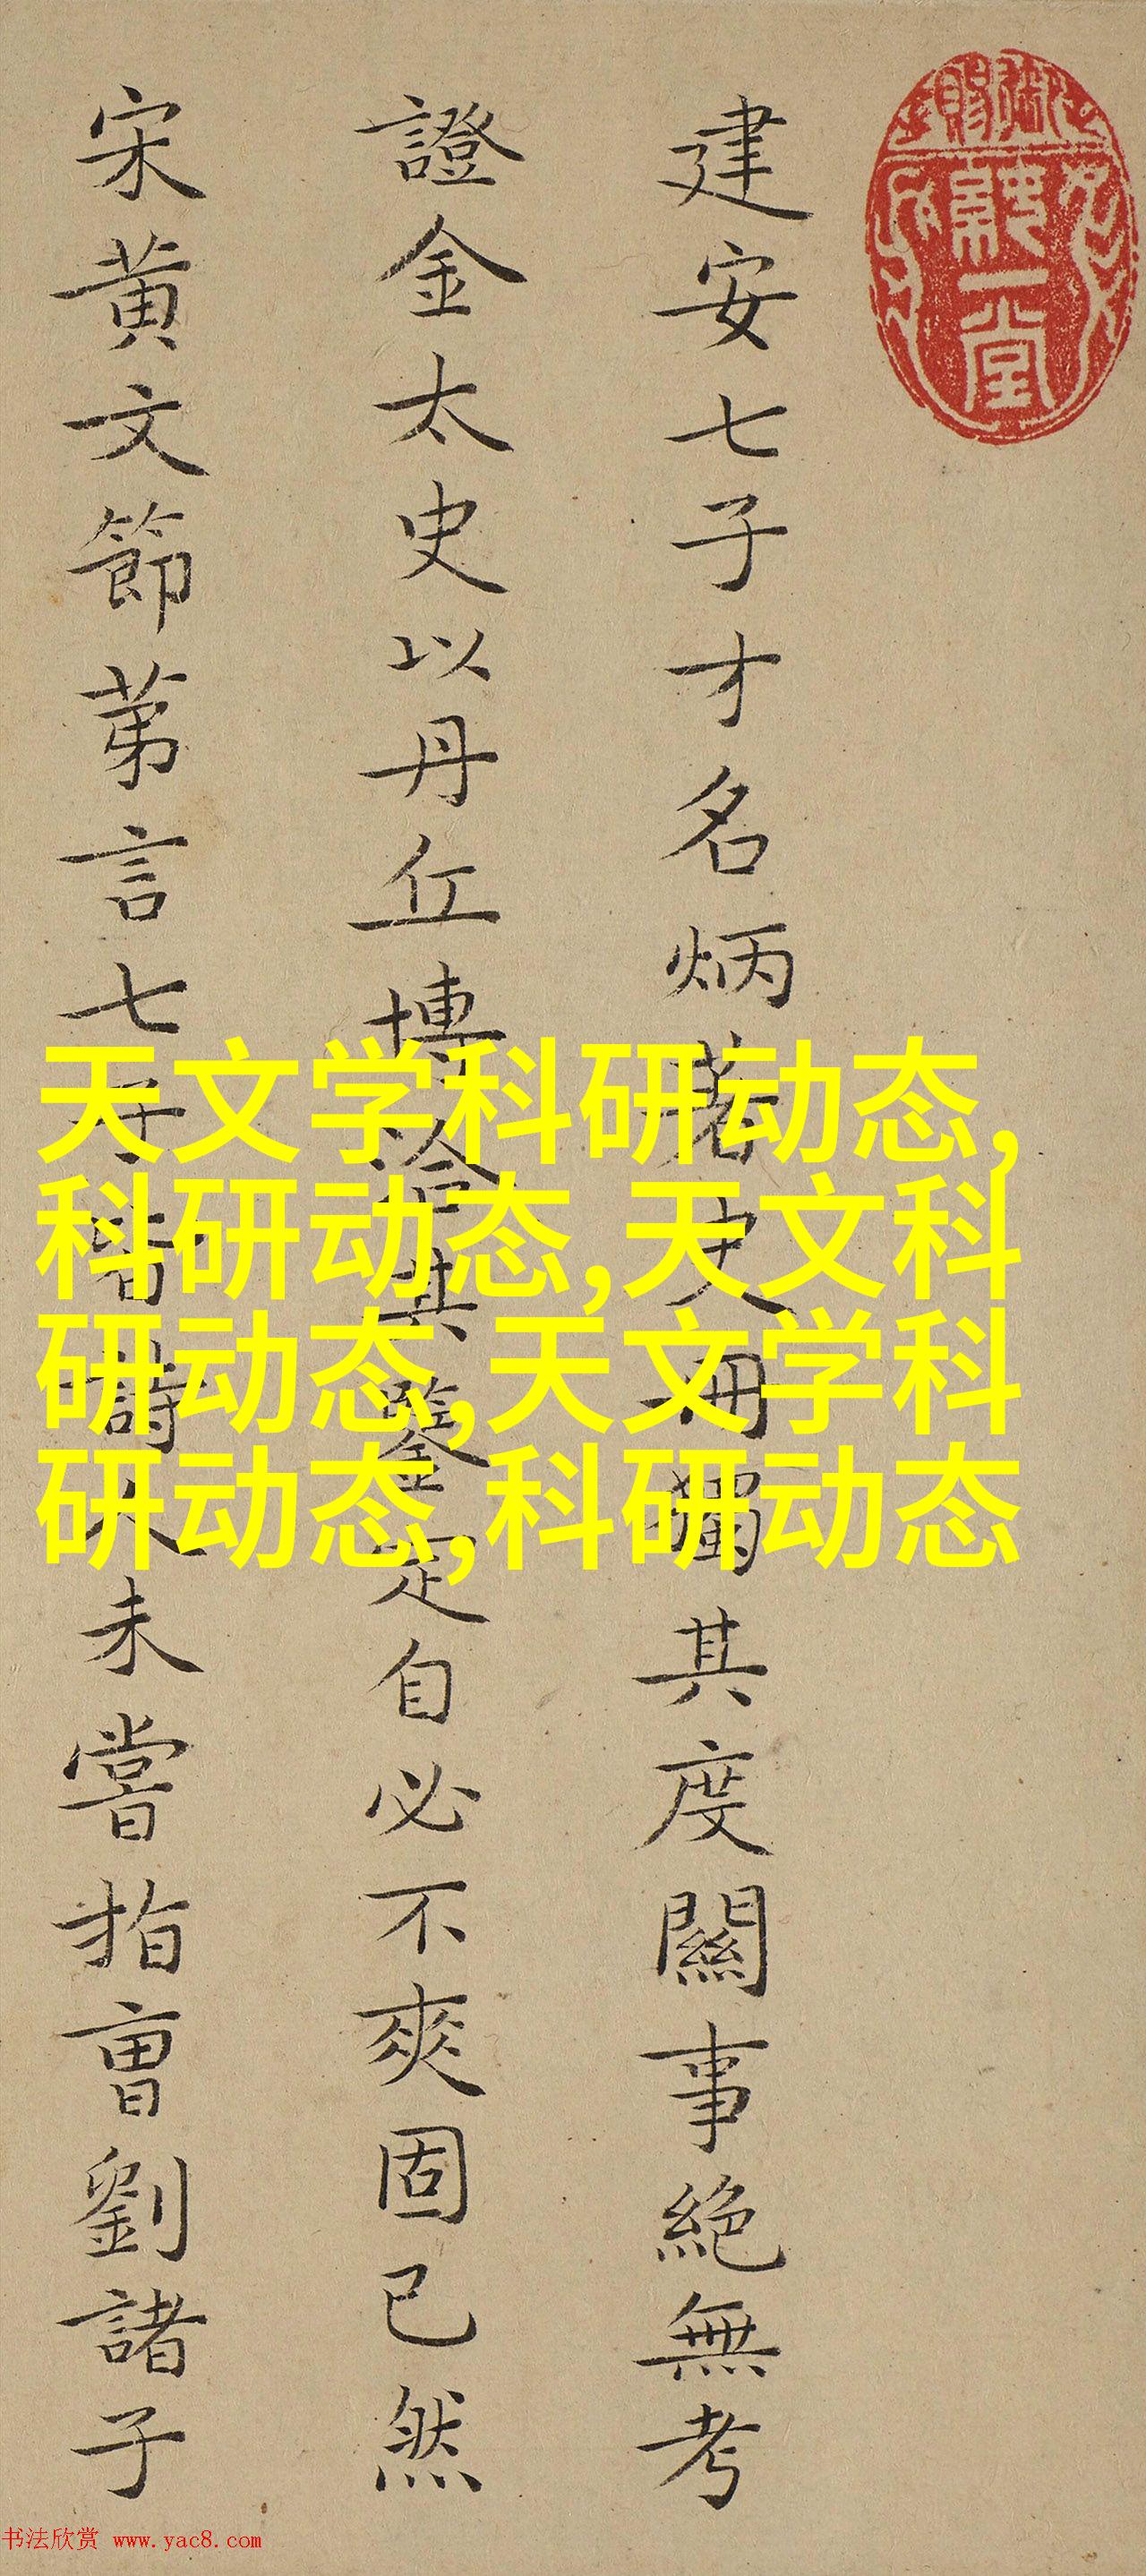 建安七子才名炳著史冊獨其度關事絕無考
證金太史以丹丘博洽其鑒定自必不爽固已然
宋黃文節苐言七子皆詩人未嘗指曹劉諸子
天文学科研动态,
科研动态,天文科
研动态,天文学科
研动态,科研动态
书法欣赏 www.yac8.com